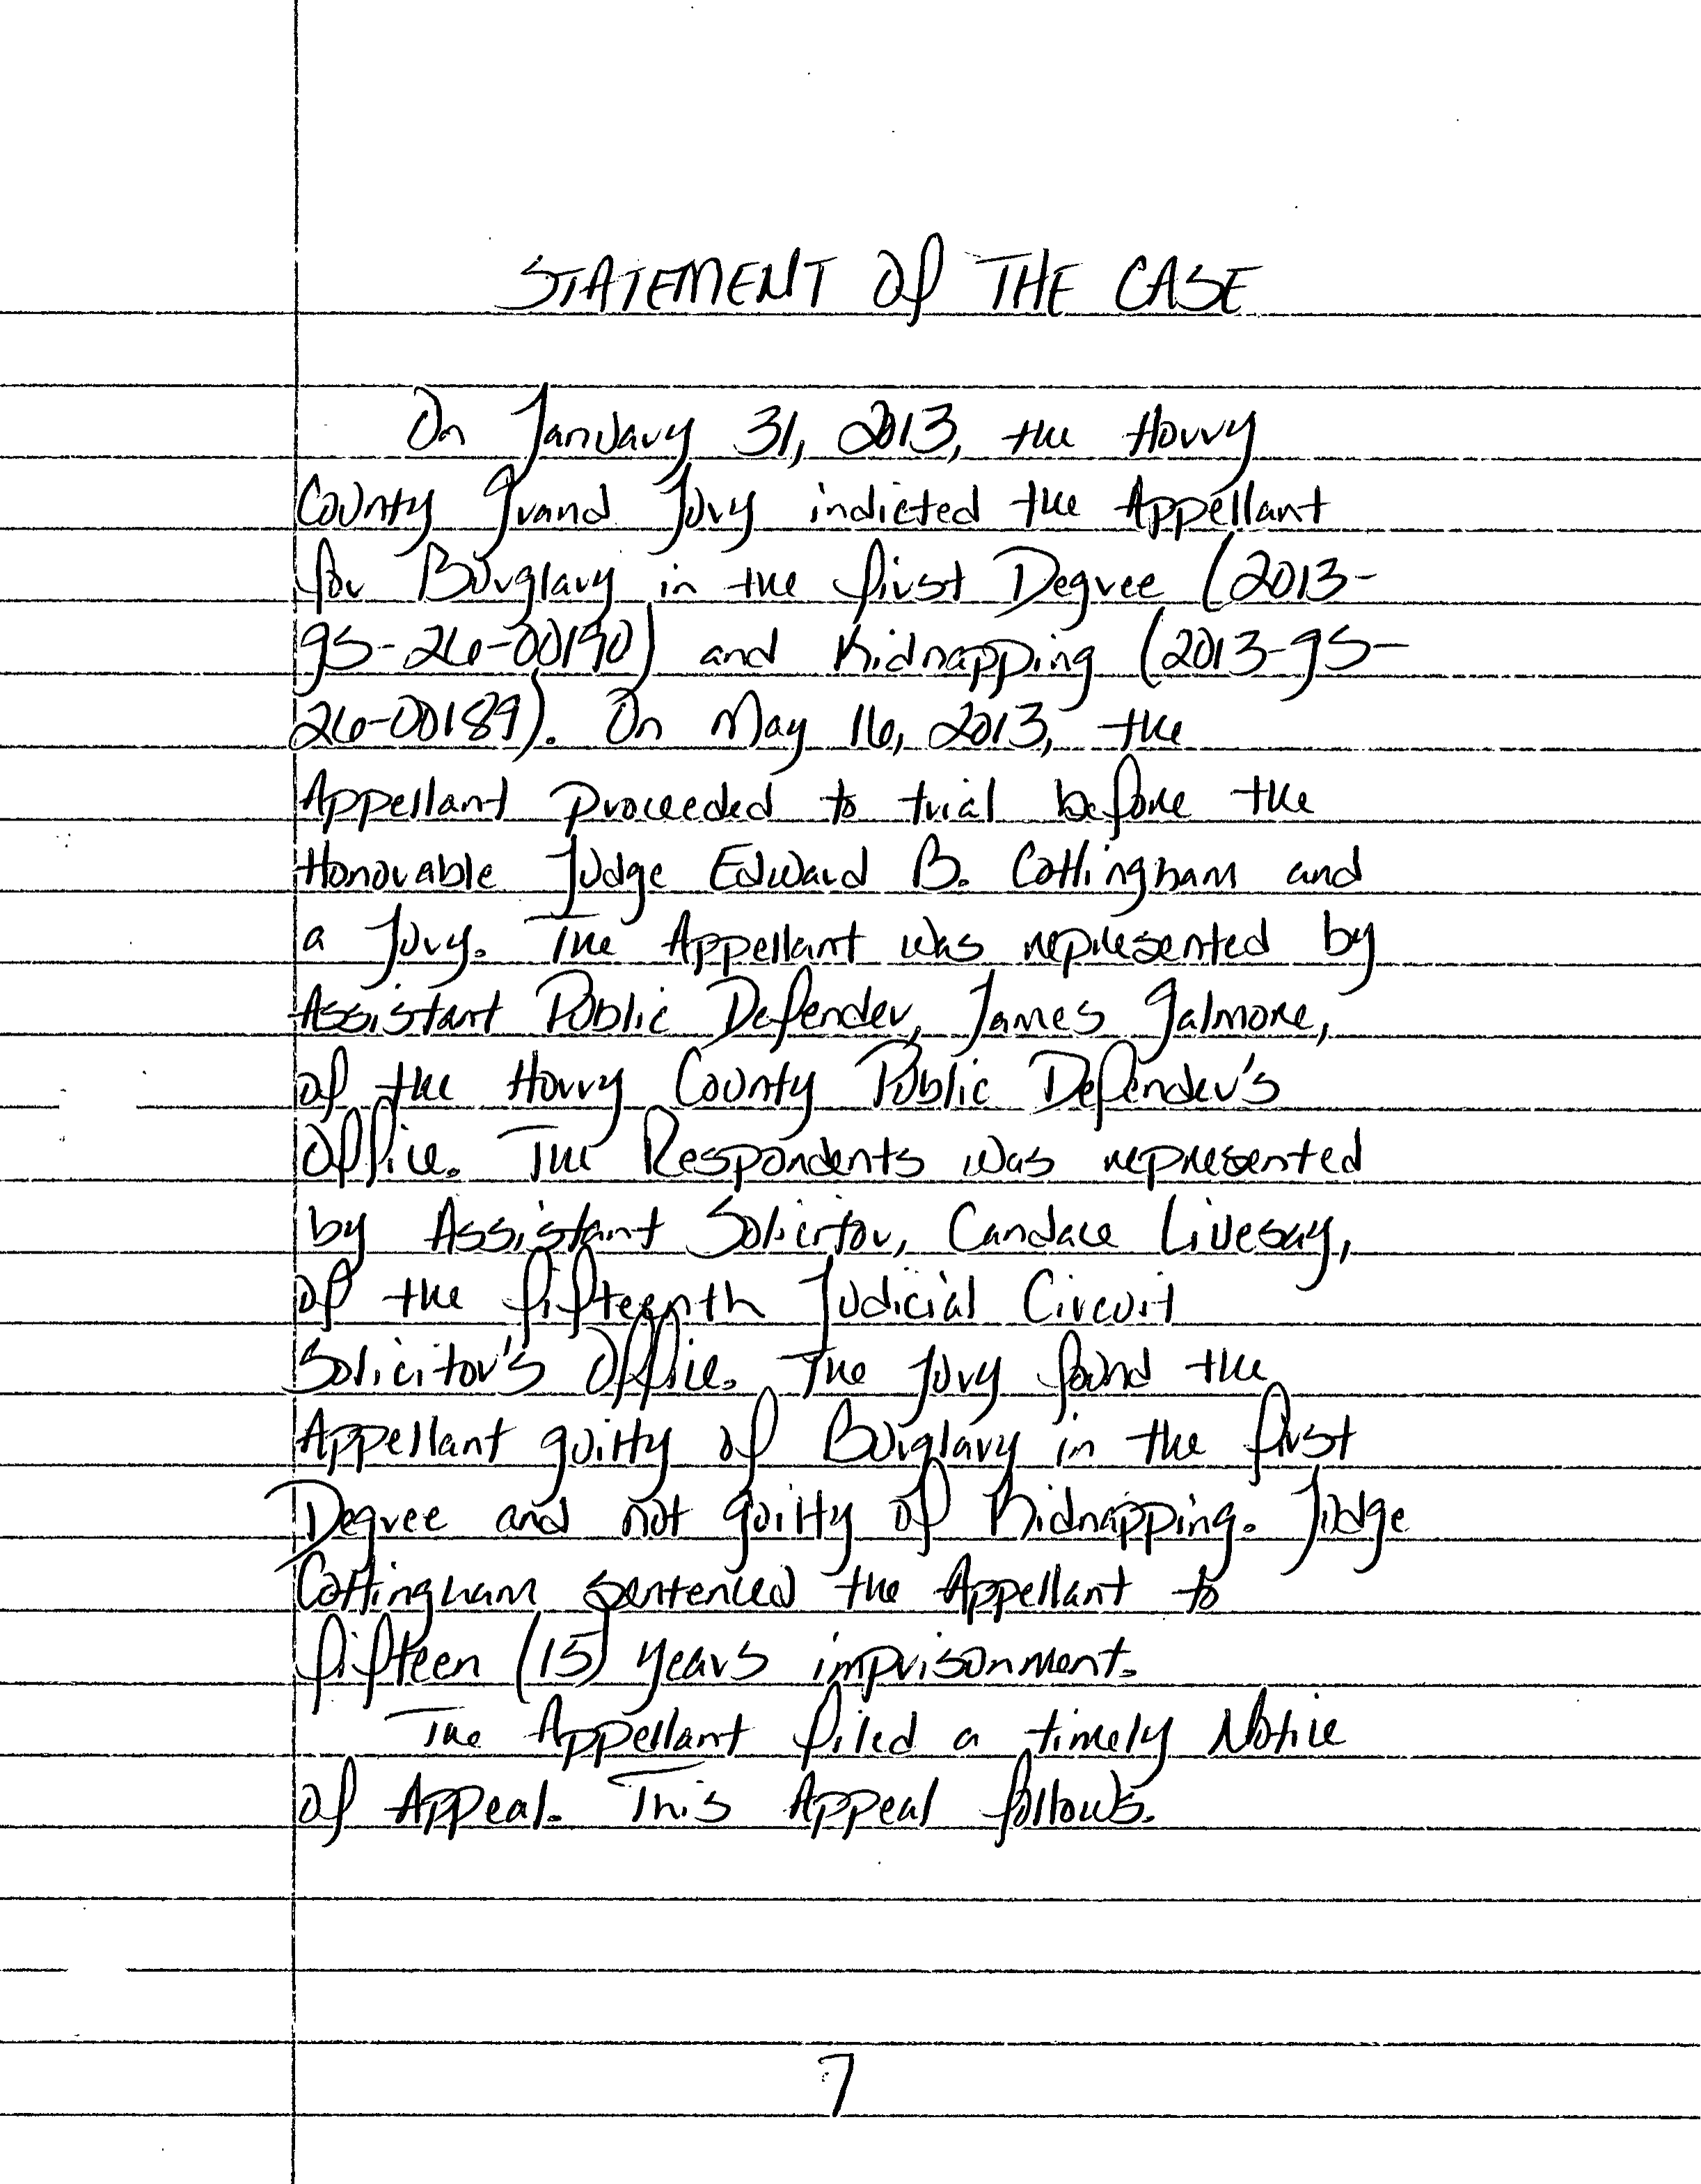 STATEMENT Of THE CASE
On January 31, 2013, the Horry
County Grand Jury indicted the Appellant
for Burglary in the first Degree (2013-
GS-26-00190) and Kidnapping (2013-GS-
26-00189). On May 16, 2013, the
Appellant proceeded to trial before the
Honorable Judge Edward B. Cottingham and
a Jury. The Appellant was represented by
Assistant Public Defender, James Galmore,
of the Horry County Public Defender's
Office. The Respondents was represented
by Assistant Solicitor, Candace Livesay,
of the fifteenth Judicial Circuit
Solicitor's Office. The jury found the
Appellant guilty of Burglary in the first
Degree and not guilty of Kidnapping. Judge
Cottingham sentenced the Appellant to
fifteen (15) years imprisonment.
The Appellant filed a timely Notice
of Appeal. This Appeal follows.
7